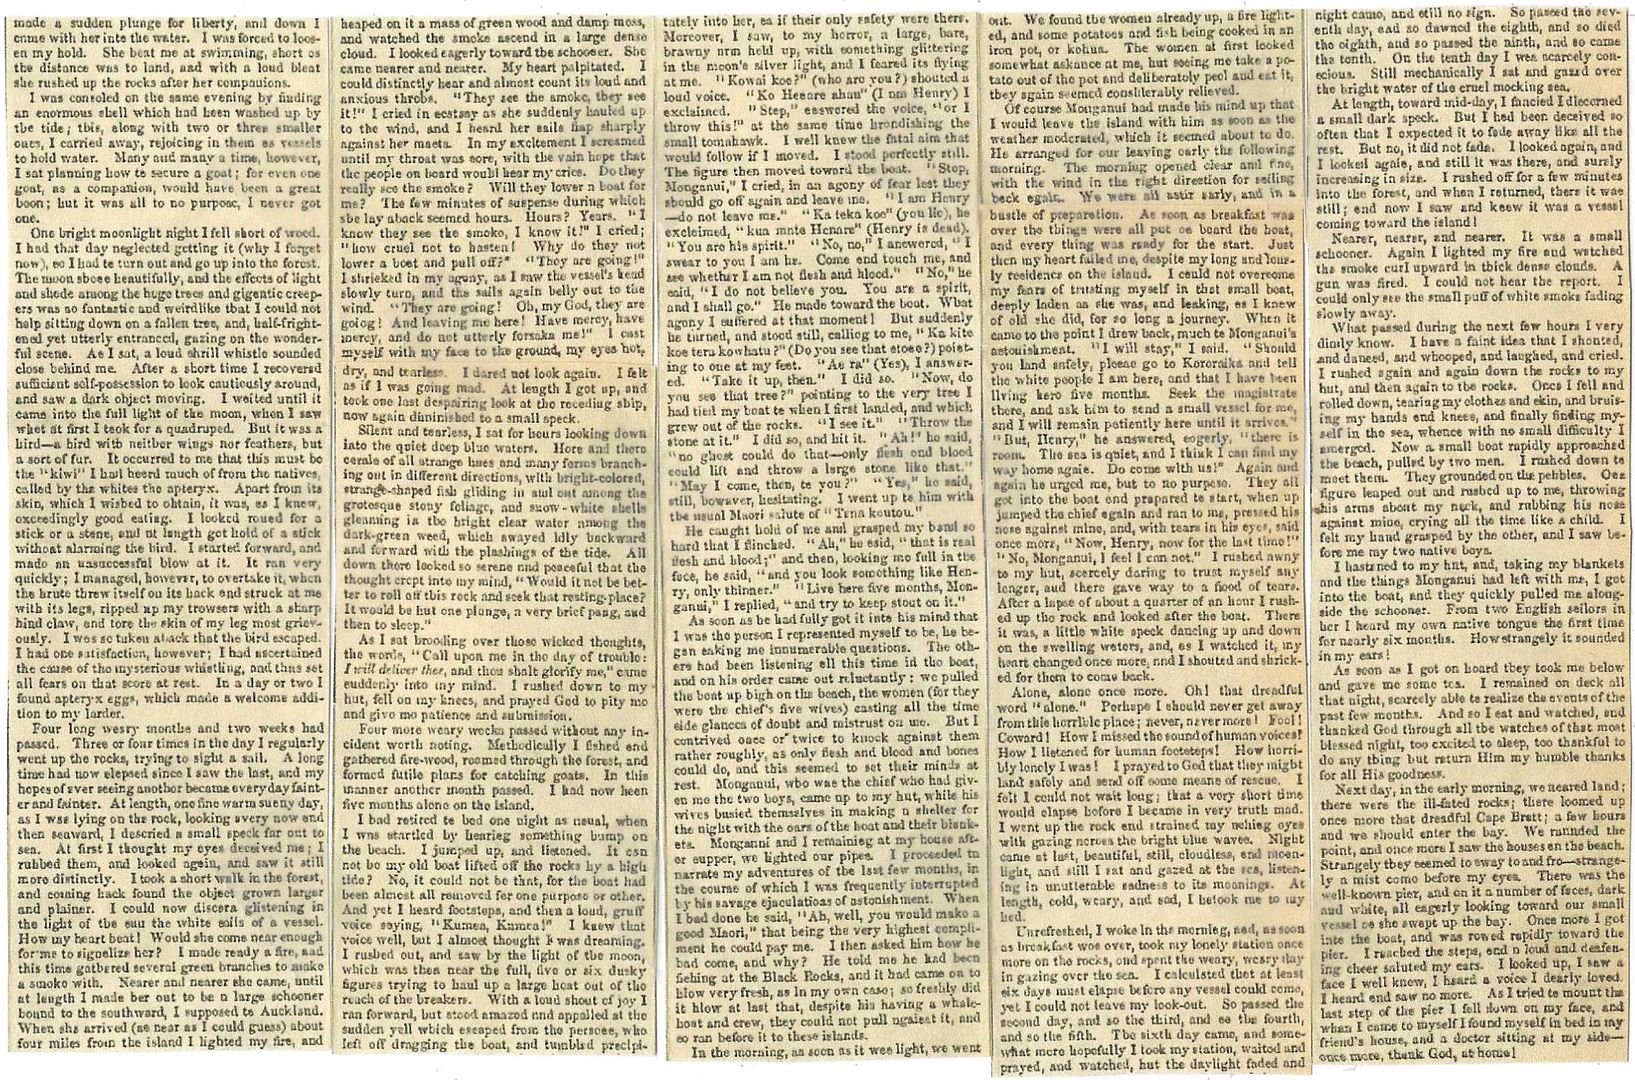 made a sudden plunge for liberty, and down I
came with her into the water. I was forced to loos-
en my hold. She beat me at swimming, short as
the distance was to land, and with a loud bleat
she rushed up the rocks after her companions.
I was consoled on the same evening by finding
an enormous shell which had been washed up by
the tide; this, along with two or three smaller
ones, I carried away, rejoicing in them as vessels
to hold water. Many and many a time, however,
I sat planning how to secure a goat; for even one
goat, as a companion, would have been a great
boon; but it was all to no purpose, I never got
one.
One bright moonlight night I fell short of wood.
I had that day neglected getting it (why I forget
now), so I had to turn out and go up into the forest.
The moon shone beautifully, and the effects of light
and shade among the huge trees and gigantic creep-
ers was so fantastic and weirdlike that I could not
help sitting down on a fallen tree, and, half-fright-
ened yet utterly entranced, gazing on the wonder-
ful scene. As I sat, a loud shrill whistle sounded
close behind me. After a short time I recovered
sufficient self-possession to look cautiously around,
and saw a dark object moving. I waited until it
came into the full light of the moon, when I saw
what at first I took for a quadruped. But it was a
bird—a bird with neither wings nor feathers, but
a sort of fur. It occurred to me that this must be
the "kiwi" I had heard much of from the natives,
called by the whites the apteryx. Apart from its
skin, which I wished to obtain, it was, as I knew,
exceedingly good eating. I looked round for a
stick or a stone, and at length got hold of a stick
without alarming the bird. I started forward, and
made an unsuccessful blow at it. It ran very
quickly; I managed, however, to overtake it, when
the brute threw itself on its back and struck at me
with its legs, ripped up my trowsers with a sharp
hind claw, and tore the skin of my leg most griev-
ously. I was so taken aback that the bird escaped.
I had one satisfaction, however; I had ascertained
the cause of the mysterious whistling, and thus set
all fears on that score at rest. In a day or two I
found apteryx eggs, which made a welcome addi-
tion to my larder.
Four long weary months and two weeks had
passed. Three or four times in the day I regularly
went up the rocks, trying to sight a sail. A long
time had now elapsed since I saw the last, and my
hopes of ever seeing another became everyday faint-
er and fainter. At length, one fine warm sunny day,
as I was lying on the rock, looking every now and
then seaward, I descried a small speck far out to
sea. At first I thought my eyes deceived me; I
rubbed them, and looked again, and saw it still
more distinctly. I took a short walk in the forest,
and coming back found the object grown larger
and plainer. I could now discern glistening in
the light of the sun the white sails of a vessel.
How my heart beat! Would she come near enough
for me to signalize her? I made ready a fire, and
this time gathered several green branches to make
a smoke with. Nearer and nearer she came, until
at length I made her out to be a large schooner
bound to the southward, I supposed to Auckland.
When she arrived (as near as I could guess) about
four miles from the island I lighted my fire, and
heaped on it a mass of green wood and damp moss,
and watched the smoke ascend in a large dense
cloud. I looked eagerly toward the schooner. She
came nearer and nearer. My heart palpitated. I
could distinctly hear and almost count its loud and
anxious throbs. "They see the smoke, they see
it!" I cried in ecstasy as she suddenly hauled up
to the wind, and I heard her sails flap sharply
against her masts. In my excitement I screamed
until my throat was sore, with the vain hope that
the people on board would hear my cries. Do they
really see the smoke? Will they lower a boat for
me? The few minutes of suspense during which
she lay aback seemed hours. Hours? Years. "I
know they see the smoke, I know it!" I cried;
"how cruel not to hasten! Why do they not
lower a boat and pull off?" "They are going!"
I shrieked in my agony, as I saw the vessel's head
slowly turn, and the sails again belly out to the
wind. "They are going! Oh, my God, they are
going! And leaving me here! Have mercy, have
mercy, and do not utterly forsake me!" I cast
myself with my face to the ground, my eyes hot,
dry, and tearless. I dared not look again. I felt
as if I was going mad. At length I got up, and
took one last despairing look at the receding ship,
now again diminished to a small speck.
Silent and tearless, I sat for hours looking down
into the quiet deep blue waters. Here and there
corals of all strange hues and many forms branch-
ing out in different directions, with bright-colored,
strange-shaped fish gliding in and out among the
grotesque stony foliage, and snow-white shells
gleaming in the bright clear water among the
dark-green weed, which swayed idly backward
and forward with the plashings of the tide. All
down there looked so serene and peaceful that the
thought crept into my mind, "Would it not be bet-
ter to roll off this rock and seek that resting-place?
It would be but one plunge, a very brief pang, and
then to sleep."
As I sat brooding over those wicked thoughts,
the words, "Call upon me in the day of trouble:
I will deliver thee, and thou shalt glorify me," came
suddenly into my mind. I rushed down to my
hut, fell on my knees, and prayed God to pity me
and give me patience and submission.
Four more weary weeks passed without any in-
cident worth noting. Methodically I fished and
gathered fire-wood, roamed through the forest, and
formed futile plans for catching goats. In this
manner another month passed. I had now been
five months alone on the island.
I had retired to bed one night as usual, when
I was startled by hearing something bump on
the beach. I jumped up, and listened. It can
not be my old boat lifted off the rocks by a high
tide? No, it could not be that, for the boat had
been almost all removed for one purpose or other.
And yet I heard footsteps, and then a loud, gruff
voice saying, "Kumea, Kumea!" I knew that
voice well, but I almost thought I was dreaming.
I rushed out, and saw by the light of the moon,
which was then near the full, five or six dusky
figures trying to haul up a large boat out of the
reach of the breakers. With a loud shout of joy I
ran forward, but stood amazed and appalled at the
sudden yell which escaped from the persons, who
left off dragging the boat, and tumbled precipi-
tately into her, as if their only safety were there.
Moreover, I saw, to my horror, a large, bare,
brawny arm held up, with something glittering
in the moon's silver light, and I feared its flying
at me. "Kowai koe?" (who are you?) shouted a
loud voice. "Ko Henare ahau" (I am Henry) I
exclaimed. "Step," answered the voice, "or I
throw this!" at the same time brandishing the
small tomahawk. I well knew the fatal aim that
would follow if I moved. I stood perfectly still.
The figure then moved toward the boat. "Stop,
Monganui," I cried, in an agony of fear lest they
should go off again and leave me. "I am Henry
—do not leave me." "Ka teka koe" (you lie), he
exclaimed, "kua mate Henare" (Henry is dead).
"You are his spirit." "No, no," I answered, "I
swear to you I am he. Come and touch me, and
see whether I am not flesh and blood." "No," he
said, "I do not believe you. You are a spirit,
and I shall go." He made toward the boat. What
agony I suffered at that moment! But suddenly
he turned, and stood still, calling to me, "Ka kite
koe tera kowhatu?" (Do you see that stone?) point-
ing to one at my feet. "Ae ra" (Yes), I answer-
ed. "Take it up, then." I did so. "Now, do
you see that tree?" pointing to the very tree I
had tied my boat to when I first landed, and which
grew out of the rocks. "I see it." "Throw the
stone at it." I did so, and hit it. "Ah!" he said,
"no ghost could do that—only flesh and blood
could lift and throw a large stone like that."
"May I come, then, to you?" "Yes," he said,
still, however, hesitating. I went up to him with
the usual Maori salute of "Tena koutou."
He caught hold of me and grasped my hand so
hard that I flinched. "Ah," he said, "that is real
flesh and blood;" and then, looking me full in the
face, he said, "and you look something like Hen-
ry, only thinner." "Live here five months, Mon-
ganui," I replied, "and try to keep stout on it."
As soon as he had fully got it into his mind that
I was the person I represented myself to be, he be-
gan asking me innumerable questions. The oth-
ers had been listening all this time in the boat,
and on his order came out reluctantly; we pulled
the boat up high on the beach, the women (for they
were the chief's five wives) casting all the time
side glances of doubt and mistrust on me. But I
contrived once or twice to knock against them
rather roughly, as only flesh and blood and bones
could do, and this seemed to set their minds at
rest. Monganui, who was the chief who had giv-
en me the two boys, came up to my hut, while his
wives busied themselves in making a shelter for
the night with the oars of the boat and their blank-
ets. Monganni and I remaining at my house aft-
er supper, we lighted our pipes. I proceeded to
narrate my adventures of the last few months, in
the course of which I was frequently interrupted
by his savage ejaculations of astonishment. When
I had done he said, "Ah, well, you would make a
good Maori," that being the very highest compli-
ment he could pay me. I then asked him how he
had come, and why? He told me he had been
fishing at the Black Rocks, and it had came on to
blow very fresh, as in my own case; so freshly did
it blow at last that, despite his having a whale-
boat and crew, they could not pull against it, and
so ran before it to these islands.
In the morning, as soon as it was light, we went
out. We found the women already up, a fire light-
ed, and some potatoes and fish being cooked in an
iron pot, or kohua. The women at first looked
somewhat askance at me, but seeing me take a po-
tato out of the pot and deliberately peel and eat it,
they again seemed considerably relieved.
Of course Monganui had made his mind up that
I would leave the island with him as soon as the
weather moderated, which it seemed about to do.
He arranged for our leaving early the following
morning. The morning opened clear and fine,
with the wind in the right direction for sailing
back again. We were all astir early, and in a
bustle of preparation. As soon as breakfast was
over the things were all put on board the boat,
and every thing was ready for the start. Just
then my heart failed me, despite my long and lone-
ly residence on the island. I could not overcome
my fears of trusting myself in that small boat,
deeply laden as she was, and leaking, as I knew
of old she did, for so long a journey. When it
came to the point I drew back, much to Monganui's
astonishment. "I will stay," I said. "Should
you land safely, please go to Kororaika and tell
the white people I am here, and that I have been
living here five months. Seek the magistrate
there, and ask him to send a small vessel for me,
and I will remain patiently here until it arrives."
"But, Henry," he answered, eagerly, "there is
room. The sea is quiet, and I think I can find my
way home again. Do come with us!" Again and
again he urged me, but to no purpose. They all
got into the boat and prepared to start, when up
jumped the chief again and ran to me, pressed his
nose against mine, and, with tears in his eyes, said
once more, "Now, Henry, now for the last time!"
"No, Monganui, I feel I can not." I rushed away
to my hut, scarcely daring to trust myself any
longer, and there gave way to a flood of tears.
After a lapse of about a quarter of an hour I rush-
ed up the rock and looked after the boat. There
it was, a little white speck dancing up and down
on the swelling waters, and, as I watched it, my
heart changed once more, and I shouted and shriek-
ed for them to come back.
Alone, alone once more. Oh! that dreadful
word "alone." Perhaps I should never get away
from this horrible place; never, nevermore! Fool!
Coward! How I missed the sound of human voices!
How I listened for human footsteps! How horri-
bly lonely I was! I prayed to God that they might
land safely and send off some means of rescue. I
felt I could not wait long; that a very short time
would elapse before I became in very truth mad.
I went up the rock and strained my aching eyes
with gazing across the bright blue waves. Night
came at last, beautiful, still, cloudless, and moon-
light, and still I sat and gazed at the sea, listen-
ing in unutterable sadness to its moanings. At
length, cold, weary, and sad, I betook me to my
bed.
Unrefreshed, I woke in the morning, and, as soon
as breakfast was over, took my lonely station once
more on the rocks, and spent the weary, weary day
in gazing over the sea. I calculated that at least
six days must elapse before any vessel could come,
yet I could not leave my look-out. So passed the
second day, and so the third, and so the fourth,
and so the fifth. The sixth day came, and some-
what more hopefully I took my station, waited and
prayed, and watched, but the daylight faded and
night came, and still no sign. So passed the sev-
enth day, and so dawned the eighth, and so died
the eighth, and so passed the ninth, and so came
the tenth. On the tenth day I was scarcely con-
scious. Still mechanically I sat and gazed over
the bright water of the cruel mocking sea.
At length, toward mid-day, I fancied I discerned
a small dark speck. But I had been deceived so
often that I expected it to fade away like all the
rest. But no, it did not fade. I looked again, and
I looked again, and still it was there, and surely
increasing in size. I rushed off for a few minutes
into the forest, and when I returned, there it was
still; and now I saw and knew it was a vessel
coming toward the island!
Nearer, nearer, and nearer. It was a small
schooner. Again I lighted my fire and watched
the smoke curl upward in thick dense clouds. A
gun was fired. I could not hear the report. I
could only see the small puff of white smoke fading
slowly away.
What passed during the next few hours I very
dimly know. I have a faint idea that I shouted,
and danced, and whooped, and laughed, and cried.
I rushed again and again down the rocks to my
hut, and then again to the rocks. Once I fell and
rolled down, tearing my clothes and skin, and bruis-
ing my hands and knees, and finally finding my-
self in the sea, whence with no small difficulty I
emerged. Now a small boat rapidly approached
the beach, pulled by two men. I rushed down to
meet them. They grounded on the pebbles. One
figure leaped out and rushed up to me, throwing
his arms about my neck, and rubbing his nose
against mine, crying all the time like a child. I
felt my hand grasped by the other, and I saw be-
fore me my two native boys.
I hastened to my hut, and, taking my blankets
and the things Monganui had left with me, I got
into the boat, and they quickly pulled me along-
side the schooner. From two English sailors in
her I heard my own native tongue the first time
for nearly six months. How strangely it sounded
in my ears!
As soon as I got on board they took me below
and gave me some tea. I remained on deck all
that night, scarcely able to realize the events of the
past few months. And so I sat and watched, and
thanked God through all the watches of that most
blessed night, too excited to sleep, too thankful to
do any thing but return Him my humble thanks
for all His goodness.
Next day, in the early morning, we neared land;
there were the ill-fated rocks; there loomed up
once more that dreadful Cape Brett; a few hours
and we should enter the bay. We rounded the
point, and once more I saw the houses on the beach.
Strangely they seemed to sway to and fro—strange-
ly a mist came before my eyes. There was the
well-known pier, and on it a number of faces, dark
and white, all eagerly looking toward our small
vessel as she swept up the bay. Once more I got
into the boat, and was rowed rapidly toward the
pier. I reached the steps, and a loud and deafen-
ing cheer saluted my ears. I looked up, I saw a
face I well knew, I heard a voice I dearly loved.
I heard and saw no more. As I tried to mount the
last step of the pier I fell down on my face, and
when I came to myself I found myself in bed in my
friend's house, and a doctor sitting at my side—
once more, thank God, at home!